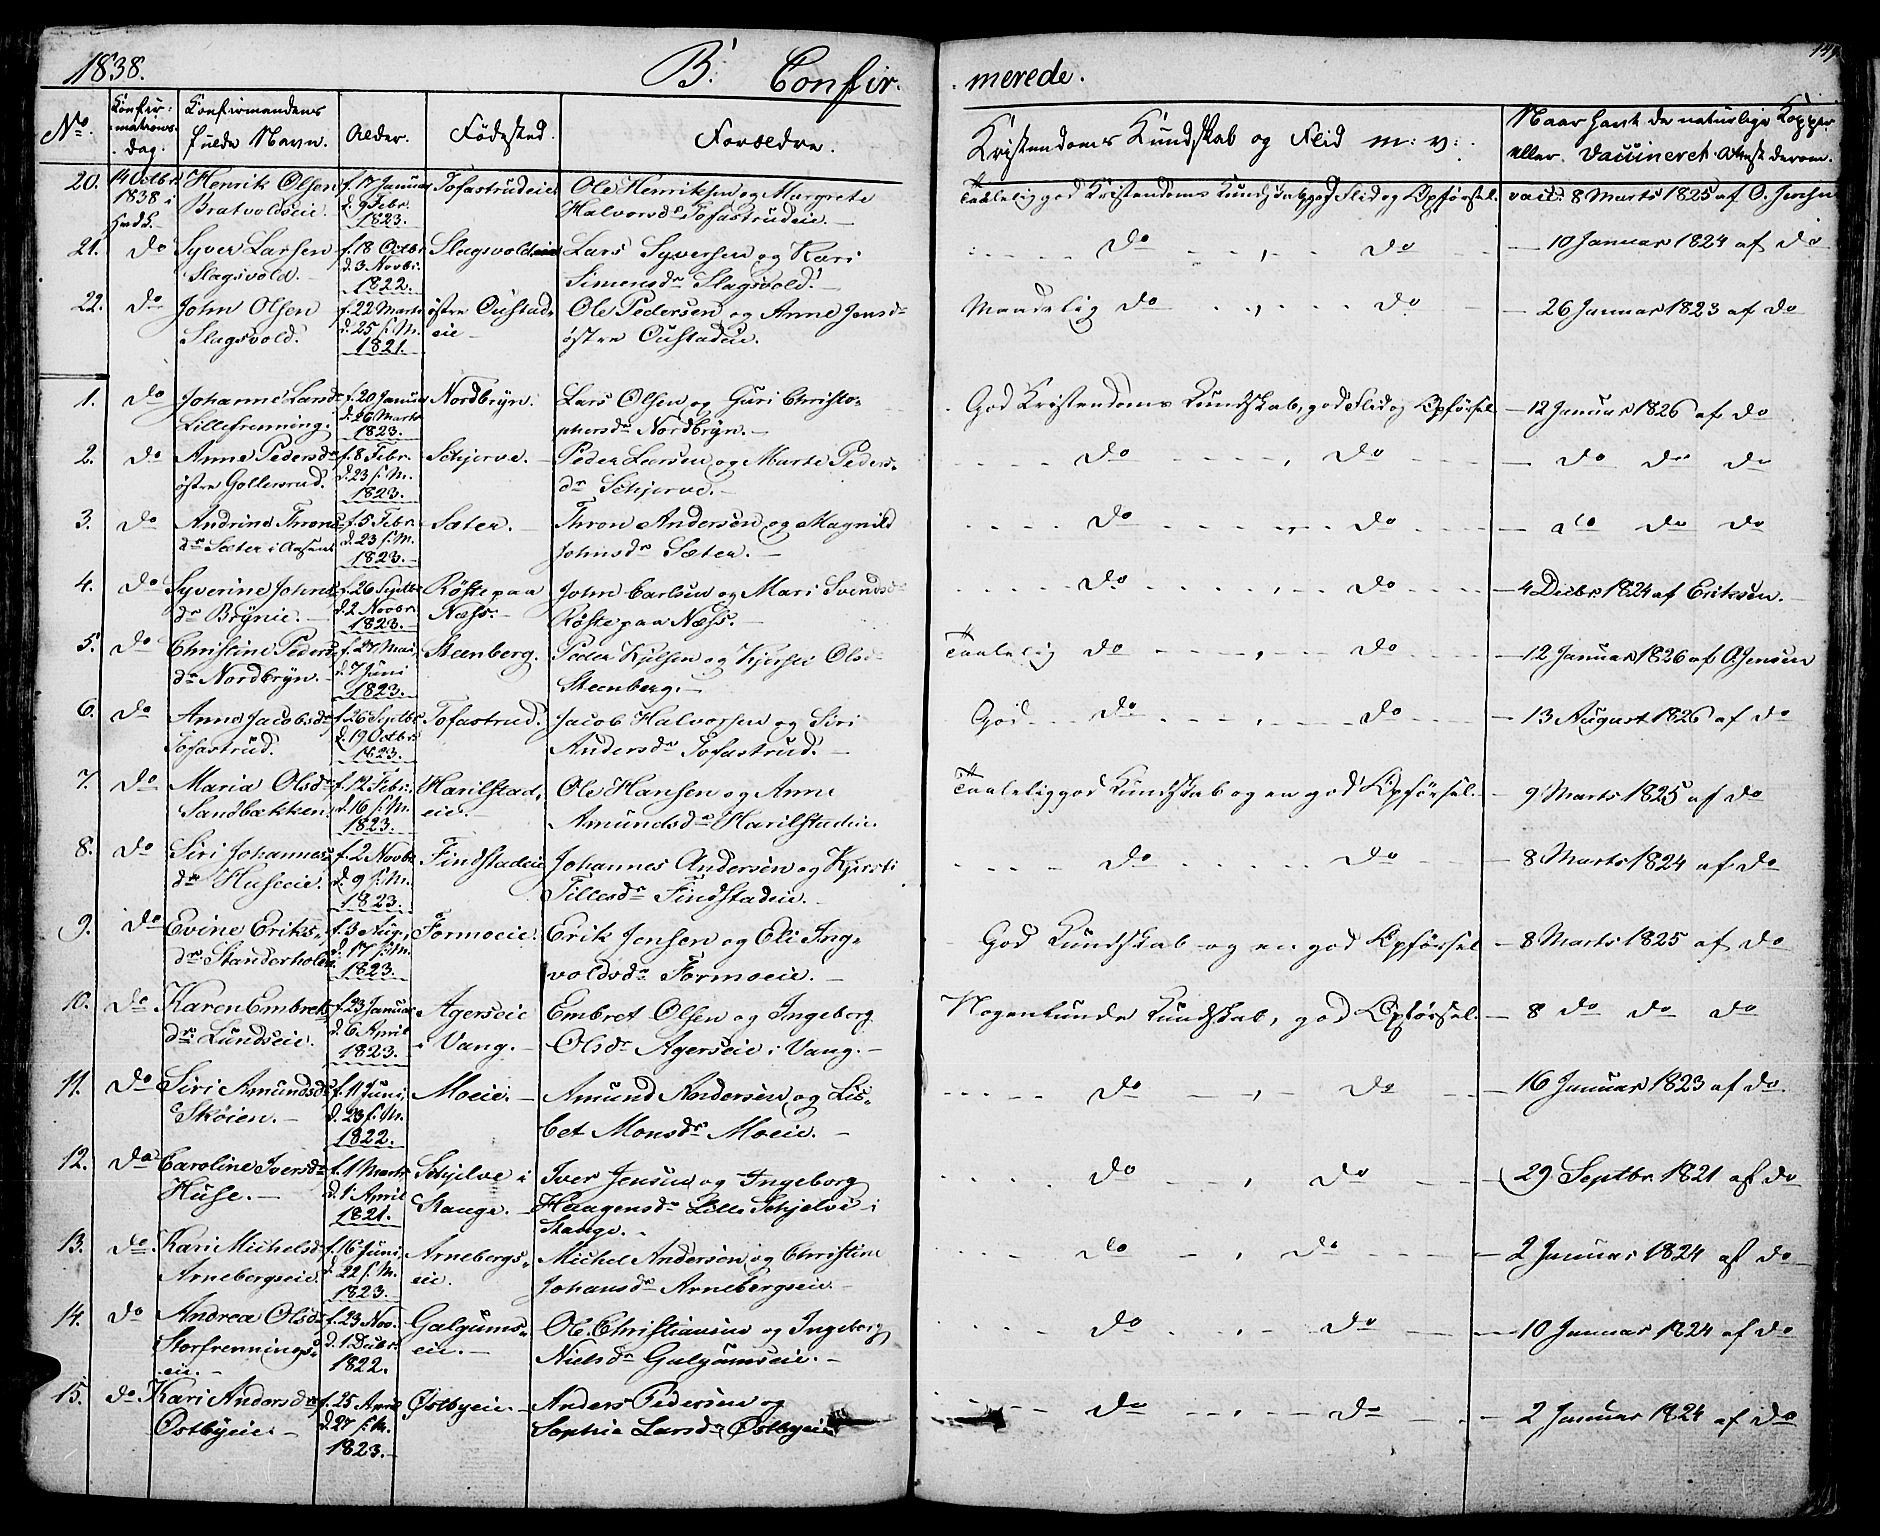 1838.
B. Confirmerede.
No. Konfirmations Dag. Konfirmandens fulde Navn. Alder. Fødested. Forældre. Kristendoms Kundskab og Flid m: v: Naar havt de naturlige Kopper eller Vaccineret
20. 14 Octbr. 1838 i Henrik Olsen Bratvoldseie. f. 17 Januar d. 9 Febr. 1823. Tofastrudeie Ole Henriksen og Margrete Halvorsdr Tofastrudeie. Taalelig god Kristendoms Kundskab, god Flid og Opførsel. vacc: 8 Marts 1825 af O. Jensen
21. do Syver Larsen Slagsvold. f. 18 Octbr d. 3 Novbr. 1822. Slagsvoldeie Lars Syversen og Kari Simensdr Slagsvold. do do 10 Januar 1824 af do
22. do John Olsen Slagsvold. f. 22 Marts d. 25 s. M. 1821. østre Oustadeie Ole Pedersen og Anne Jensdr østre Oustadeie. Maadelig do do 26 Januar 1823 af do
1. do Johanne Larsdr Lillefrenning. f. 20 Januar d. 16 Marts 1823. Nordbryn. Lars Olsen og Guri Christophersdr Nordbryn. God Kristendoms Kundskab, god Flid og Opførsel 12 Januar 1826 af do
2. do Anne Pedersdr østre Gollersrud. f. 8 Febr. d. 23 s. M. 1823. Schjerve. Peder Larsen og Marte Pedersdr Schjerve. do do do do do
3. do Andrine Thronsdr Sæter i Aasen f. 5 Febr. d. 23 s. M. 1823. Sæter. Thron Andersen og Magnild Johnsdr Sæter. do do do do do
4. do Syverine Johnsdr Brynie. f. 26 Septbr d. 2 Novbr. 1823. Røste paa Næss. John Carlsen og Mari Svendsdr Røste paa Næss. do do 4 Decbr. 1824 af Eriksen.
5. do Christine Pedersdr Nordbryn. f. 27 Mai d. 7 Juni 1823. Steenberg. Peder Kjelsen og Kjersti Olsdr Steenberg. Taalelig do do 12 Januar 1826 af O. Jensen
6. do Anne Jacobsdr Tofastrud. f. 26 Septbr d. 19 Octbr. 1823. Tofastrud. Jacob Halvorsen og Siri Andersdr Tofastrud. God do do 13 August 1826 af do
7. do Maria Olsdr Sandbækken. f. 12 Febr. d. 16 s. M. 1823. Harilstadeie. Ole Hansen og Anne Amundsdr Harilstadeie. Taalelig god Kundskab og en god Opførsel. 9 Marts 1825 af do
8. do Siri Johannesdr Huseeie. f. 2 Novbr. d. 9 s. M. 1823. Findstadeie Johannes Andersen og Kjersti Tillesdr Findstadeie. do do 8 Marts 1824 af do
9. do Evine Eriksdr Standerholen. f. 5 Aug. d. 17 s. M. 1823. Formoeie. Erik Jensen og Eli Ingvoldsdr Formoeie. God Kundskab og en god Opførsel 8 Marts 1825 af do
10. do Karen Embretsdr Lundseie. f. 23 Januar d. 6 April 1823. Agerseie i Vang. Embret Olsen og Ingeborg Olsdr Agerseie i Vang. Nogenlunde Kundskab, god Opførsel. 8 do do do
11. do Siri Amundsdr Skøien. f. 11 Juni, d. 23 s. M. 1822. Moeie. Amund Andersen og Lisbet Monsdr Moeie. do do 16 Januar 1823 af do
12. do Caroline Iversdr Huse. f. 1 Marts d. 1 April 1821. Schjelve i Stange. Iver Jensen og Ingeborg Haagensdr Lille Schjelve i Stange. do do 29 Septbr 1821 af do
13. do Kari Michelsdr Arnebergseie. f. 16 Juni, d. 22 s. M. 1823. Arnebergseie. Michel Andersen og Christine Johansdr Arnebergseie. do do 2 Januar 1824 af do
14. do Andrea Olsdr Storfrenningseie. f. 23 Nov. d. 1 Decbr. 1822. Galgumseie. Ole Christiansen og Ingeborg Nielsdr Galgumseie. do do 10 Januar 1824 af do
15. do Kari Andersdr Østbyeie. f. 25 April d. 27 s. M. 1823. Østbyeie. Anders Pedersen og Sophie Larsdr Østbyeie do do 2 Januar 1824 af do